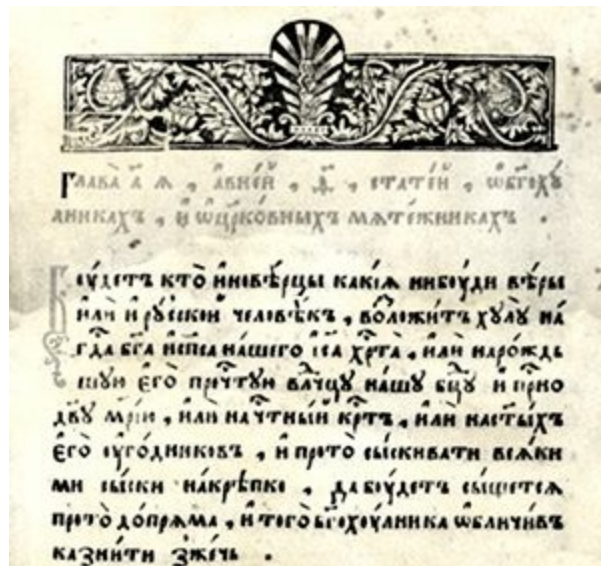 Глава̀ а҃ ѧ , а҆вне́й , ѳ҃ , стате́й , ѡ҆бг҃оху́
лникахъ , и҆ ѡ҆цр҃ко́вныхъ мѧте́жникахъ .
Бꙋ́детъ кто̀ и҆новѣ́рцы какі́ѧ нибоуди вѣ́ры
и҆лѝ и҆ рꙋ́сскои человѣ́къ , воⷥложи́тъ хꙋлꙋ̀ на́
гд҃а бг҃а и҆ сп҃са на́шего і҆са хрⷭ҇та̀ , и҆лѝ наро́ждь
шꙋю е҆го̀ прчⷭ҇тꙋю влⷣчцꙋ на́шꙋ бцⷣꙋ и҆ прⷭ҇но
дв҃ꙋ мр҃і́ю , и҆лѝ на чⷭ҇тны́й крⷭ҇тъ , и҆лѝ на ст҃ы́хъ
е҆го̀ оуго́дниковъ , и҆ прото̀ сы́скивати всѧ́ки
ми сы́ски на́крѣпко , да боу́детъ сы́щетсѧ
прото̀ до́прѧма , и҆ того̀ бг҃охоу́лника ѡ҆бличи́въ
казни́ти зже́чь .